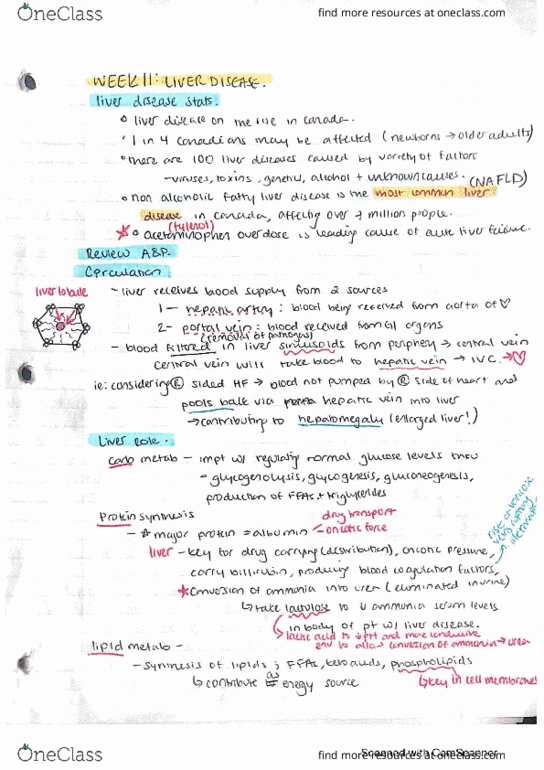 OneClass
find more resources at oneclass.com
WEEK 11: LIVER DISEASE.
liver disease stats.
liver disease on the rise in canada.
1 in 4 canadians may be affected (newborns → older adults)
there are 100 liver diseases caused by variety of factors
- viruses, toxins, genetics, alcohol + unknown causes.
(NAFLD)
non alcoholic fatty liver disease is the most common liver
disease in canada, affecting over 7 million people.
(tylenol)
acetaminophen overdose is leading cause of acute liver failure.
Review A&P.
Circulation
liver lobule
- liver receives blood supply from 2 sources
1 - hepatic artery: blood being received from aorta of ♡
2 - portal vein: blood received from GI organs
(removals of pathogens)
- blood filtered in liver sinusoids from periphery → central vein
central vein will take blood to hepatic vein → IVC. → ♡
ie: considering Ⓡ sided HF → blood not pumped by Ⓡ side of heart and
pools back via hepatic vein into liver
→ contributing to hepatomegaly (enlarged liver!)
Liver role.
carb metab - impt w/ regulating normal glucose levels thru
- glycogenolysis, glycogenesis, gluconeogenesis,
production of FFAs + triglycerides
Protein synthesis
drug transport
- # major protein = albumin - oncotic force
liver - key for drug carrying (distribution), oncotic pressure,
carry bilirubin, producing blood coagulation factors,
conversion of ammonia into urea (eliminated in urine)
↳ take lactulose to ↓ ammonia serum levels
in body of pt w/ liver disease.
lactic acid to ↓ pH and more conducive
env to allow conversion of ammonia → urea
lipid metab -
- synthesis of lipids; FFAs, keto acids, phospholipids
↳ contribute as energy source
↳ key in cell membranes
OneClass
find more resources at oneclass.com
Scanned with CamScanner